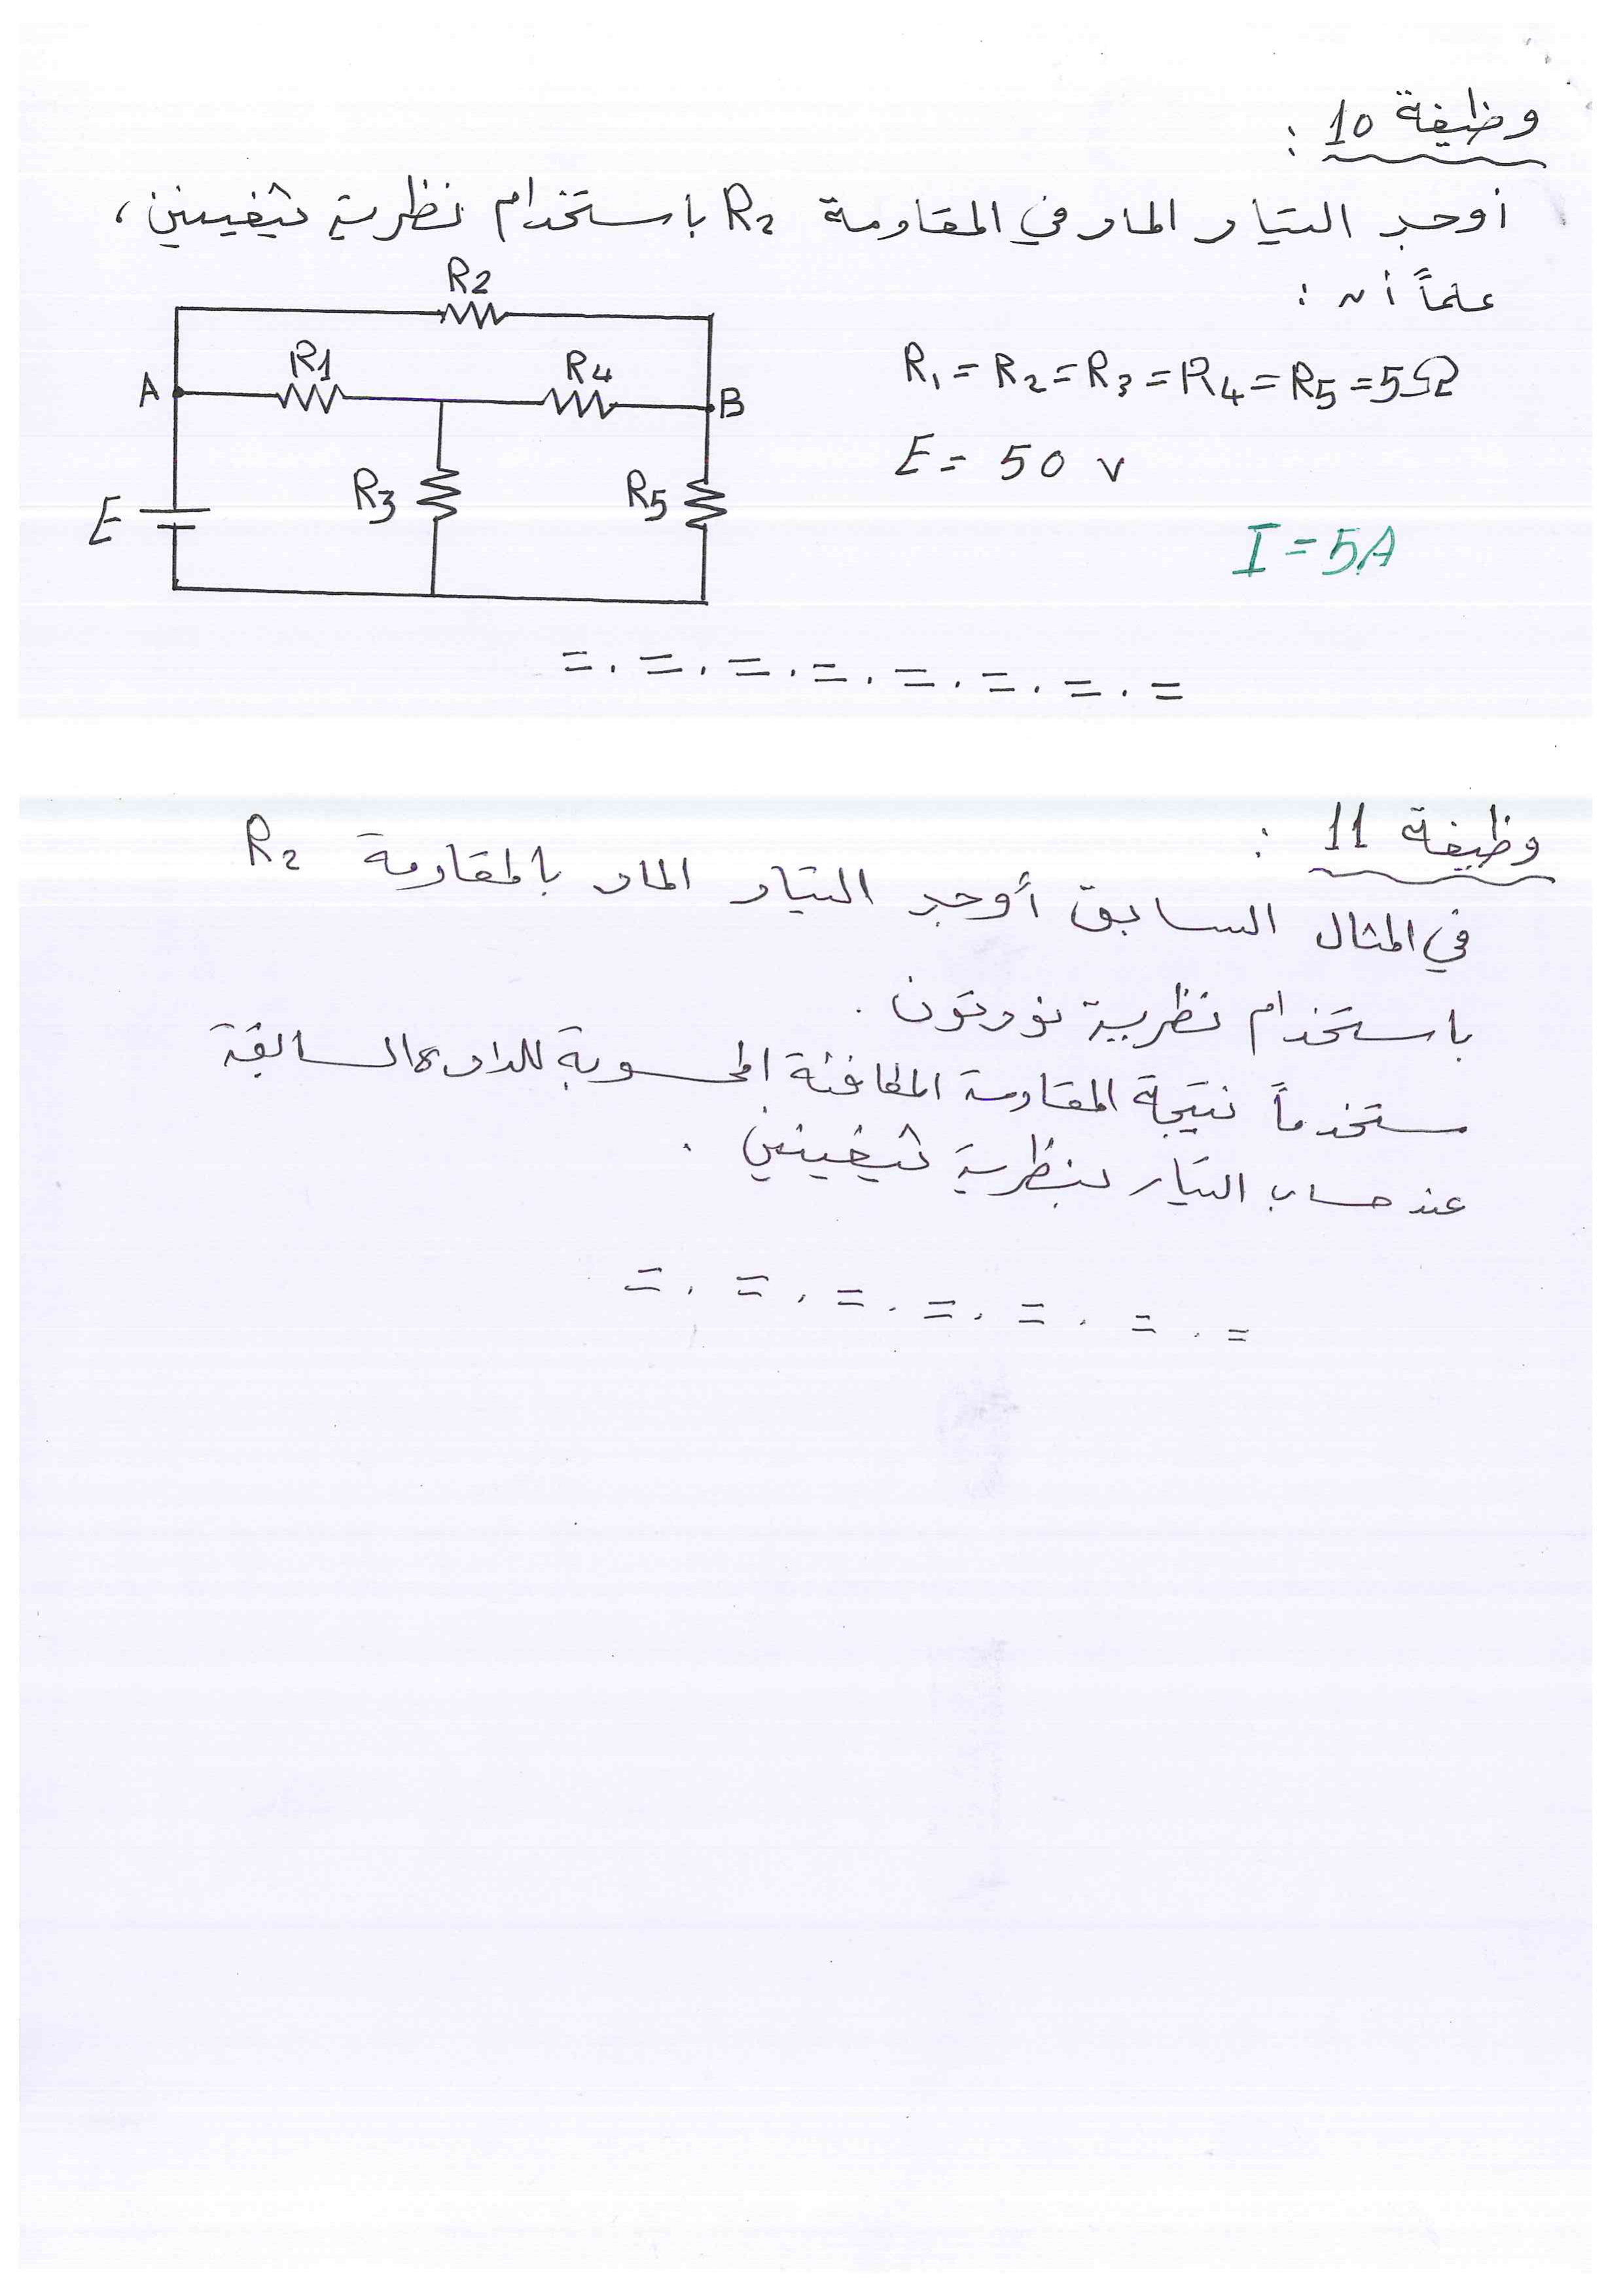 وظيفة 10 :
أوجد التيار المار في المقاومة R2 باستخدام نظرية ثيفينين ،
علماً أن :
R1 = R2 = R3 = R4 = R5 = 5Ω
E = 50 v
I = 5A
R2
A
R1
R4
B
E
R3
R5
= . = . = . = . = . = . = . =
وظيفة 11 :
في المثال السابق أوجد التيار المار بالمقاومة R2
باستخدام نظرية نورتون .
مستخدماً نتيجة المقاومة المكافئة المحسوبة للدارة السابقة
عند حساب التيار بنظرية ثيفينين .
= . = . = . = . = . = . =